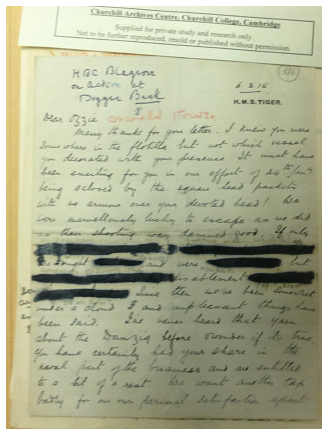 Churchill Archives Centre, Churchill College, Cambridge
Supplied for private study and research only.
Not to be further reproduced, resold or published without permission.
HBC Blagrove
on action at
Dogger Bank
6.2.15.
H.M.S. TIGER.
Dear Ozzie Oswald Frewen
Many thanks for your letter. I knew you were
somewhere in the flotilla but not which vessel
you decorated with your presence. It must have
been exciting for you in our effort of 24th
being by the square head packets
with no armour over your devoted head! We
were marvellously lucky to escape as we did
as their shooting was damned good. If only
and were but
disablement
Since then we've been somewhat
under a cloud & unpleasant things have
been said. I've never heard that yarn
about the Danzig before wonder if its true.
You have certainly had your share in the
naval part of the business and are entitled
to a bit of a rest. We want another
badly for our own personal satisfaction apart